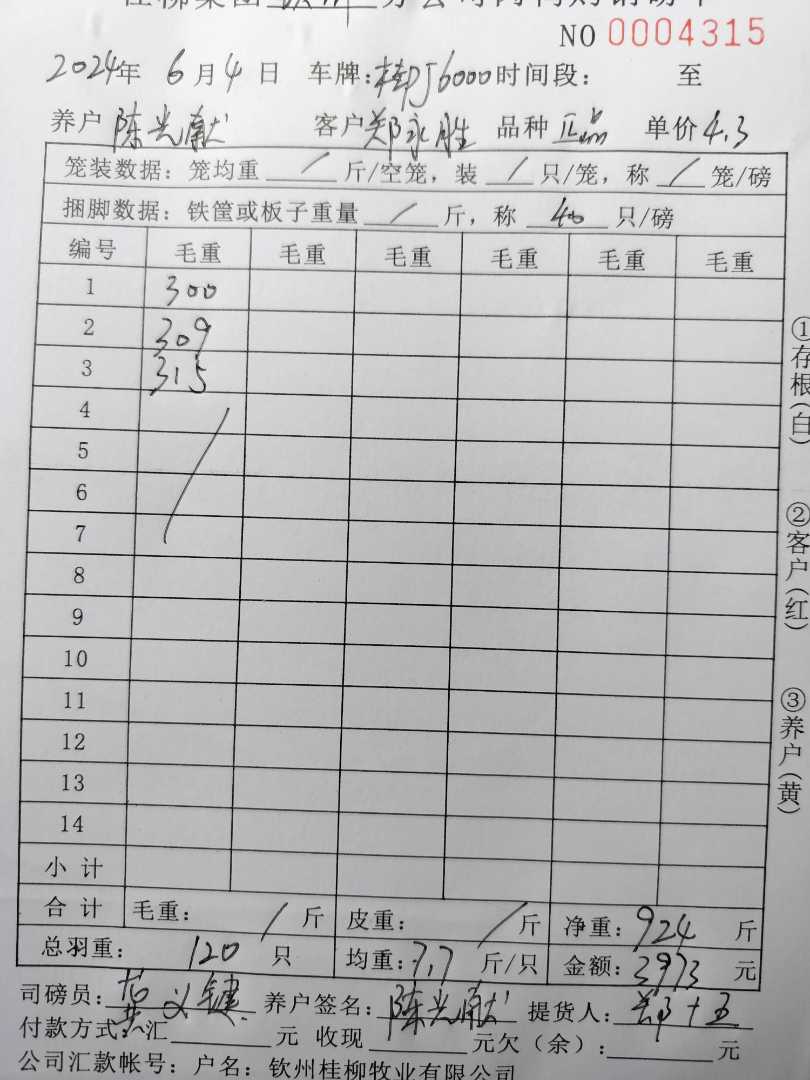 NO 0004315
2024年 6月4日 车牌:桂J6000时间段: 至
养户 陈光献 客户 郑永胜 品种 正品 单价 4.3
笼装数据: 笼均重 / 斤/空笼, 装 / 只/笼, 称 / 笼/磅
捆脚数据: 铁筐或板子重量 / 斤, 称 40 只/磅
编号 毛重 毛重 毛重 毛重 毛重 毛重
1 300
2 309
3 315
4
5
6
7
8
9
10
11
12
13
14
小计
合计 毛重: / 斤 皮重: / 斤 净重: 924 斤
总羽重: 120 只 均重: 7.7 斤/只 金额: 3973 元
司磅员: 黄义键 养户签名: 陈光献 提货人: 郑十五
付款方式: 汇 元 收现 元欠(余): 元
公司汇款帐号: 户名: 钦州桂柳牧业有限公司
①存根(白)
②客户(红)
③养户(黄)